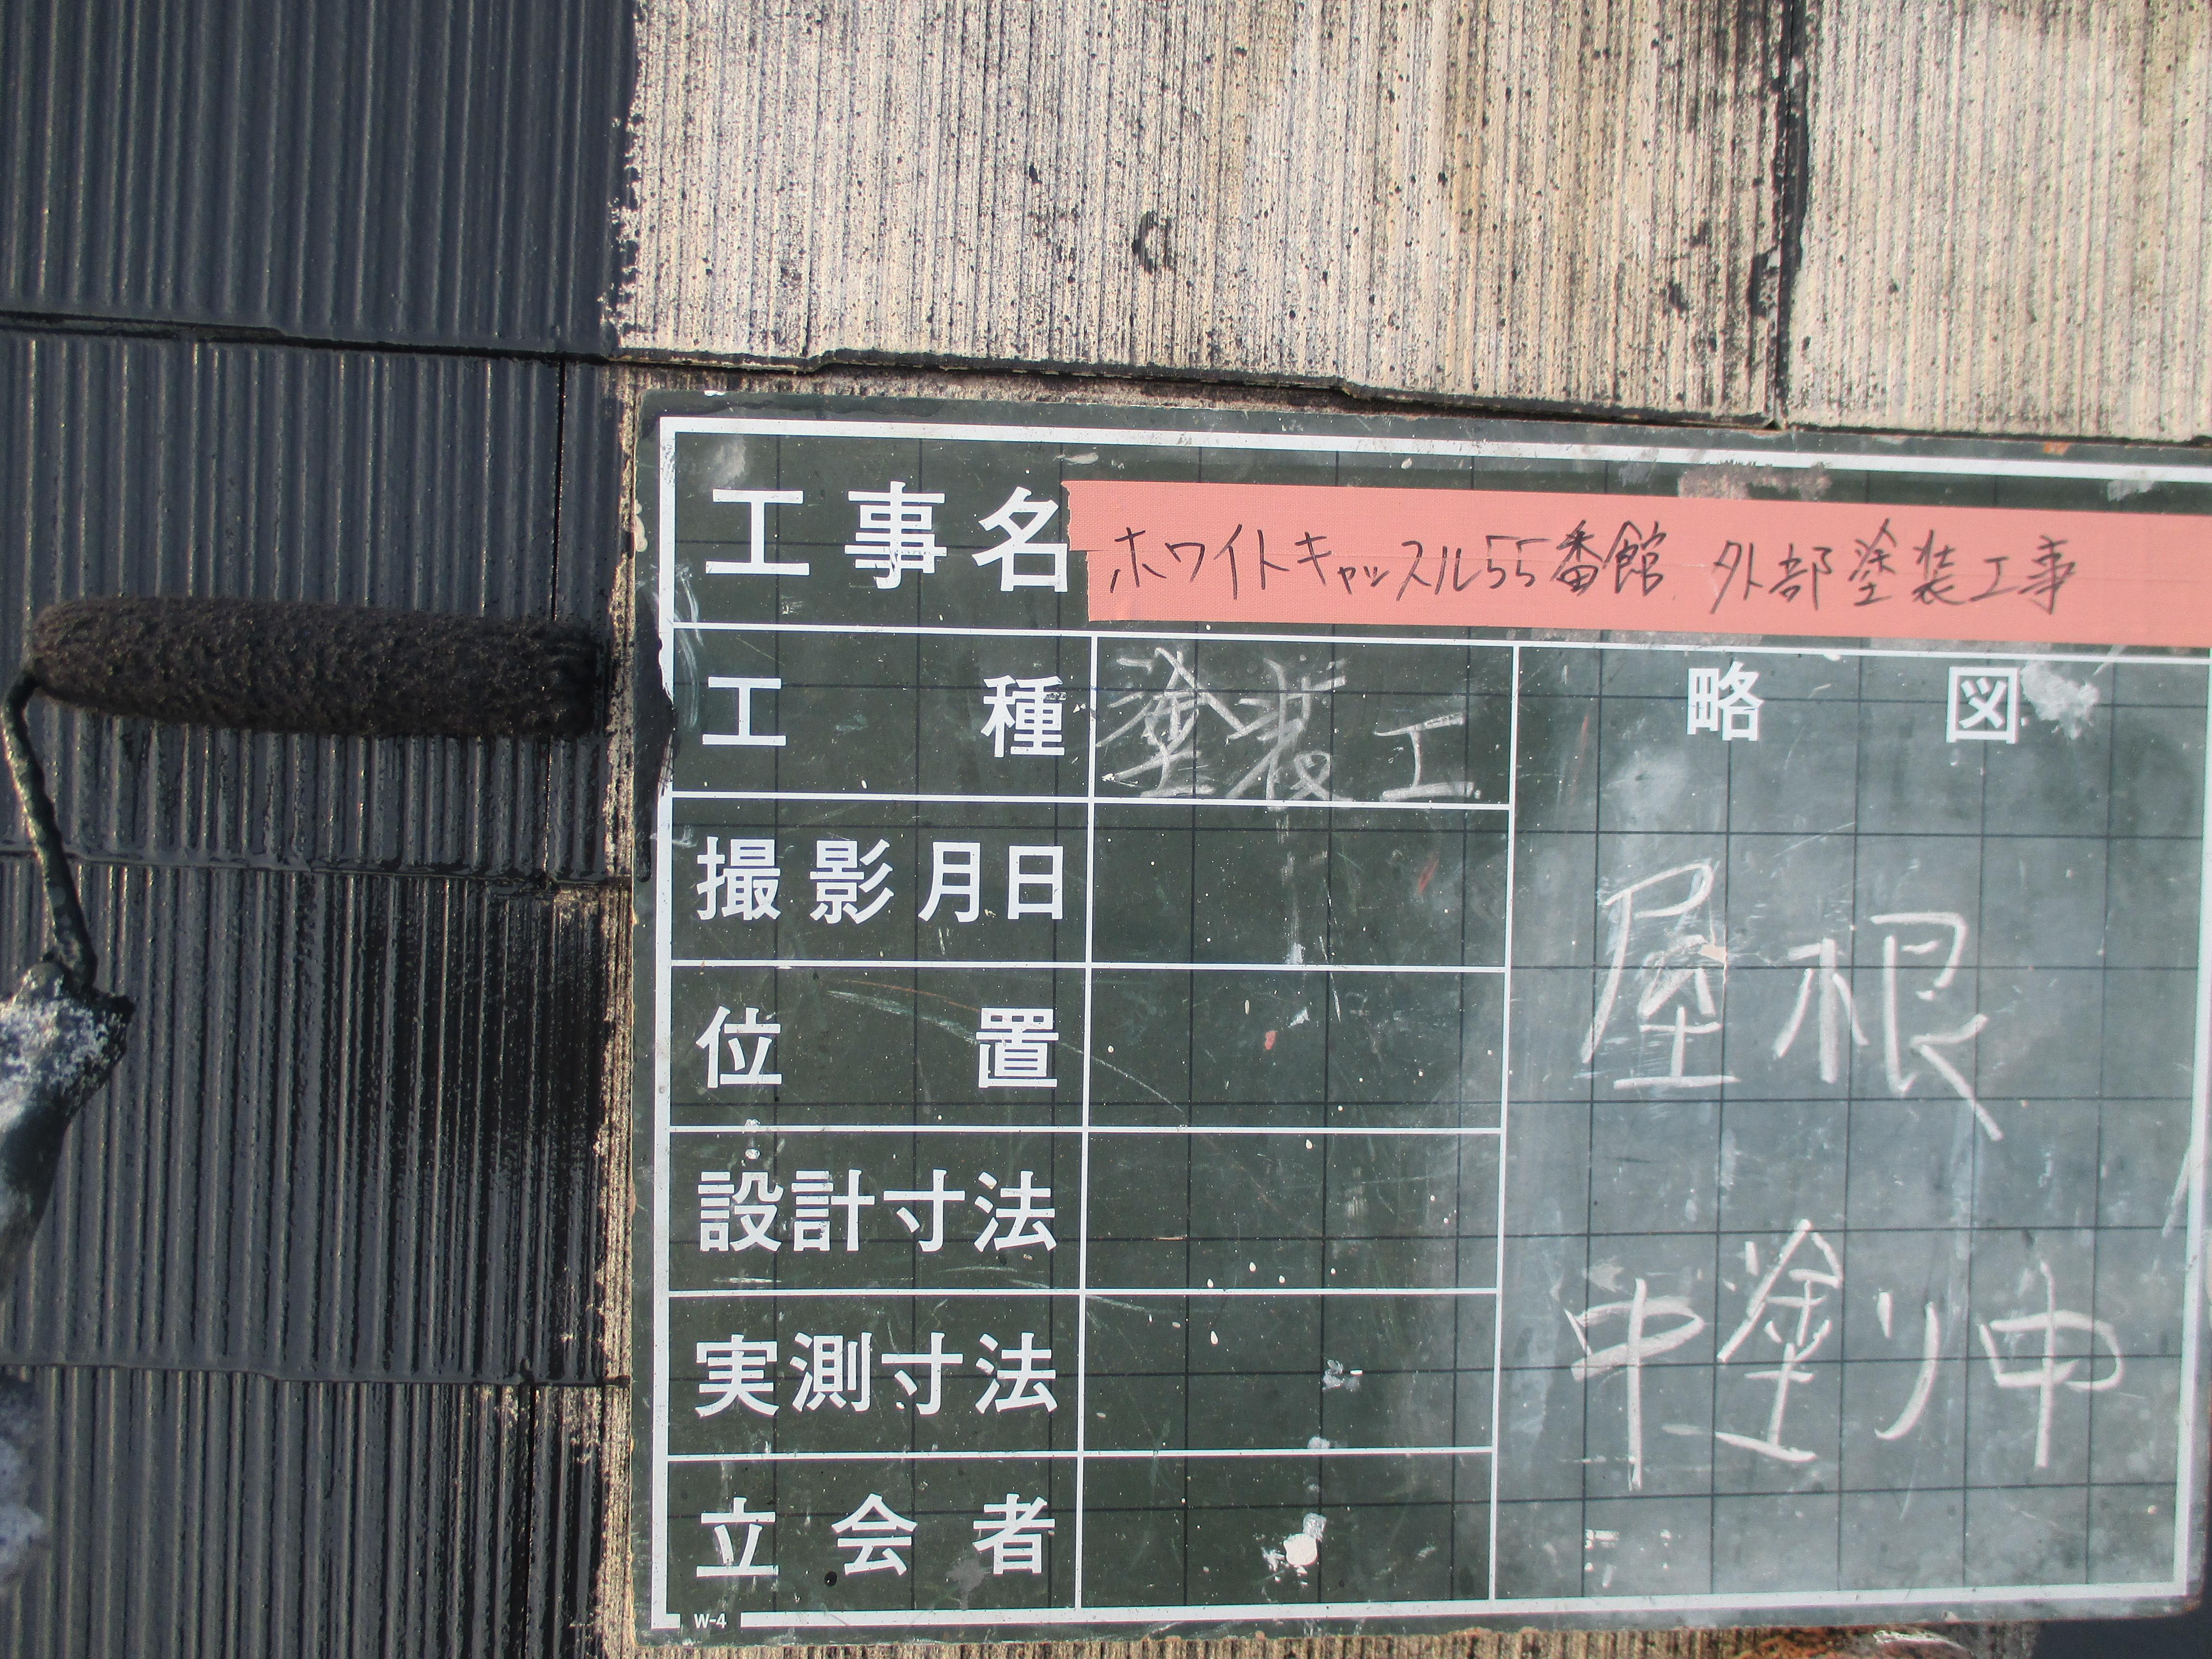 工事名 ホワイトキャッスル55番館 外部塗装工事
工種 塗装工
略図
撮影月日
位置
設計寸法
実測寸法
立会者
屋根
中塗り中
W-4